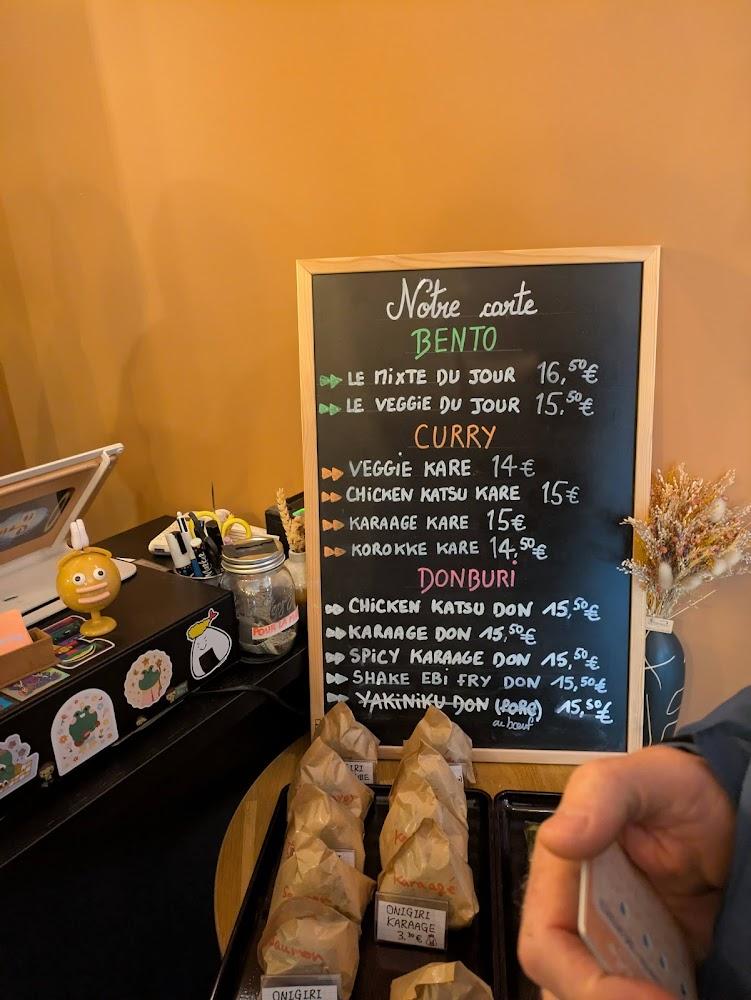 Notre carte
BENTO
LE MIXTE DU JOUR 16,50€
LE VEGGIE DU JOUR 15,50€
CURRY
VEGGIE KARE 14€
CHICKEN KATSU KARE 15€
KARAAGE KARE 15€
KOROKKE KARE 14,50€
DONBURI
CHICKEN KATSU DON 15,50€
KARAAGE DON 15,50€
SPICY KARAAGE DON 15,50€
SHAKE EBI FRY DON 15,50€
YAKINIKU DON (PORC) 15,50€
au bœuf
POUR LA
Karaage
ONIGIRI
KARAAGE
3,30€
ONIGIRI